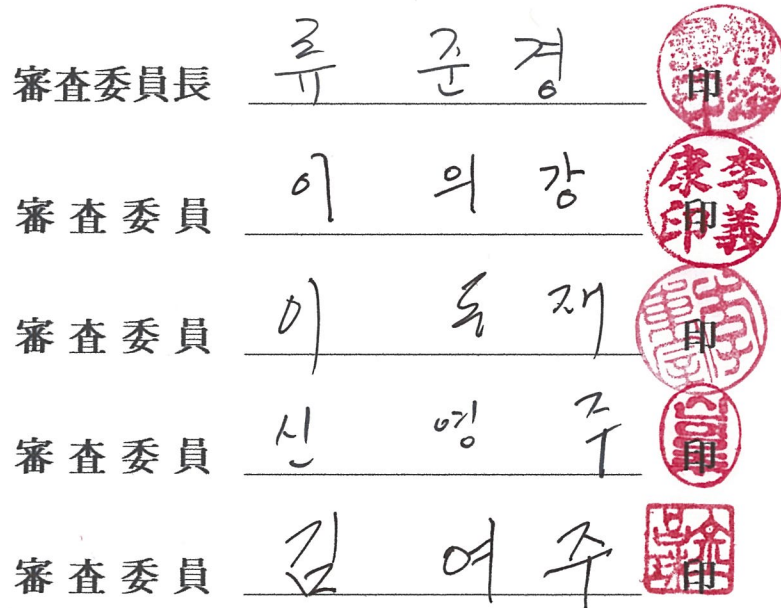 審査委員長 류 준 경 印
審査委員 이 의 강 印 李義康印
審査委員 이 재 印
審査委員 신 영 주 印
審査委員 김 여 주 印